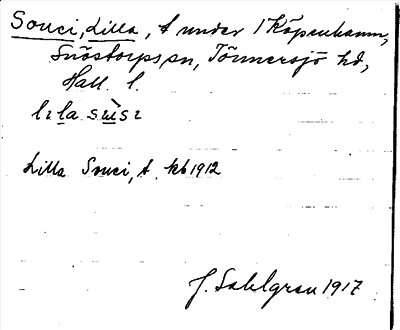 Souci, Lilla, t under 1 Köpenhamn,
Snöstorps sn, Tönnersjö hd,
Hall. l.
lıla sùsı
Lilla Souci, t. kb 1912
J. Sahlgren 1917